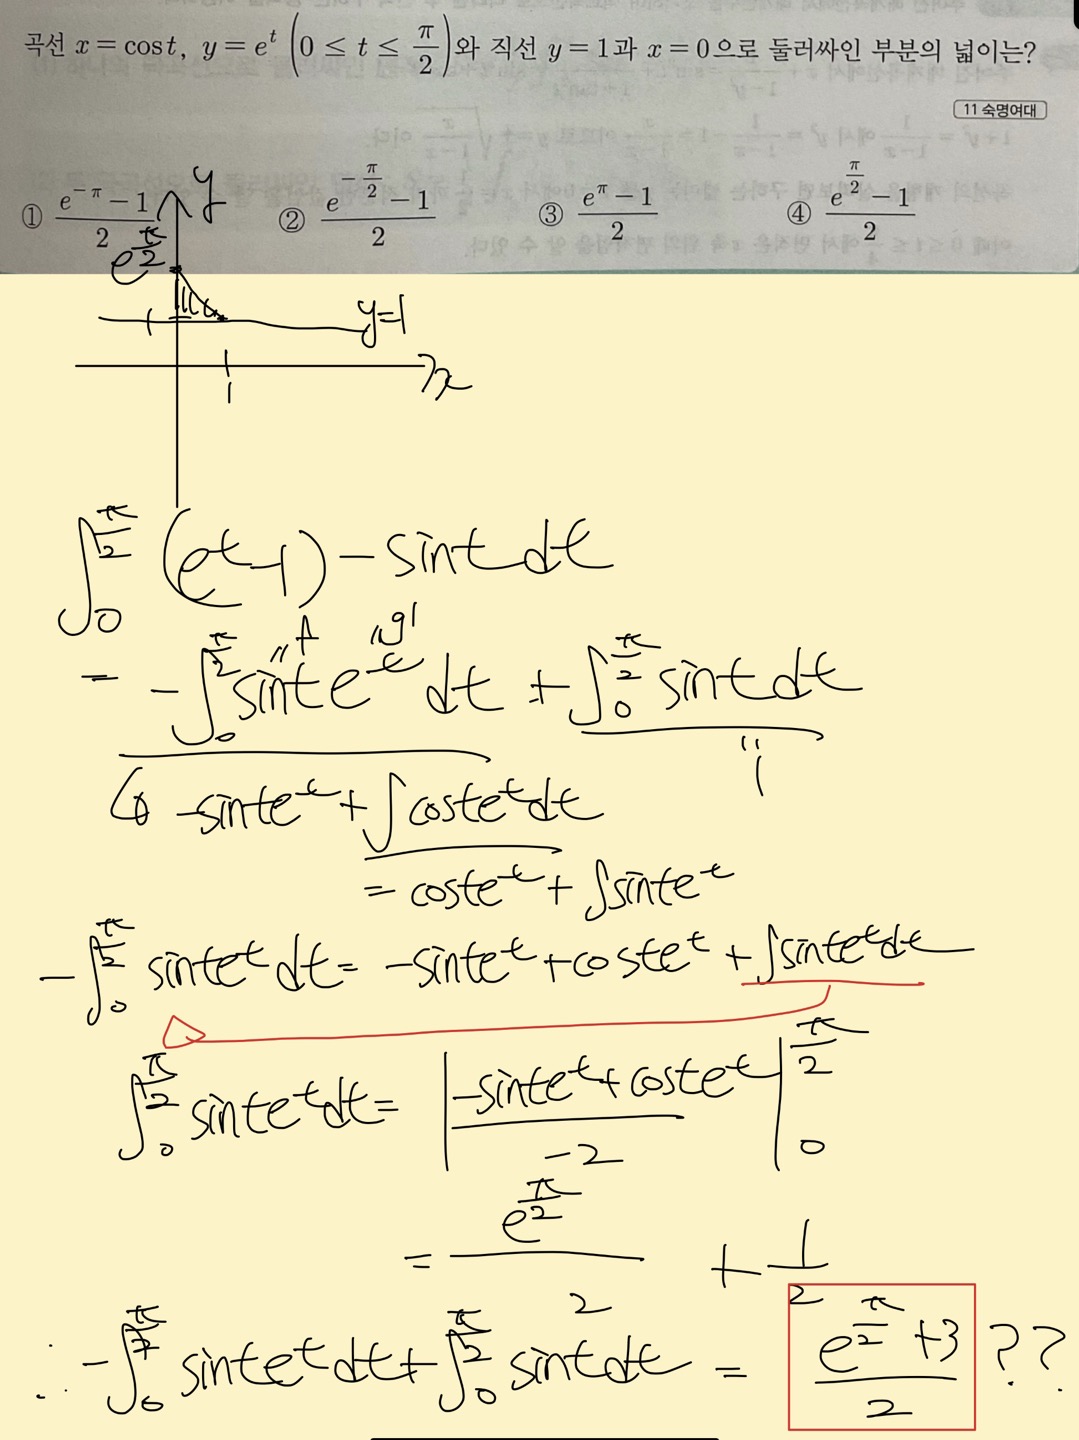 곡선 x = cos t, y = e^t (0 ≤ t ≤ π/2)와 직선 y = 1과 x = 0으로 둘러싸인 부분의 넓이는?
11 숙명여대
① (e^{-π} - 1)/2 ② (e^{-π/2} - 1)/2 ③ (e^π - 1)/2 ④ (e^{π/2} - 1)/2
y
e^{π/2}
1 y=1
x
1
∫_0^{π/2} (e^t-1) -sint dt
f g'
= -∫_0^{π/2} sint e^t dt + ∫_0^{π/2} sint dt
1
-sint e^t + ∫cost e^t dt
= cost e^t + ∫sint e^t
-∫_0^{π/2} sint e^t dt = -sint e^t + cost e^t + ∫sint e^t dt
∫_0^{π/2} sint e^t dt = |(-sint e^t + cost e^t)/-2|_0^{π/2}
= e^{π/2}/2 + 1/2
∴ -∫_0^{π/2} sint e^t dt + ∫_0^{π/2} sint dt = (e^{π/2}+3)/2 ??